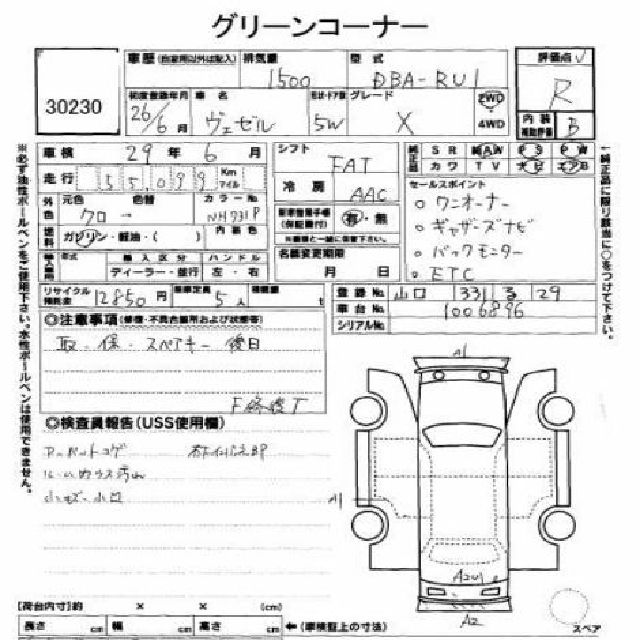 グリーンコーナー
30230
車歴 (自家用以外は記入) 排気量 1500 型式 DBA-RU1 評価点 R
初度登録年月 26/6月 車名 ヴェゼル 形状・ドア数 5W グレード X 2WD 4WD 内装補助評価 B
車検 29年 6月 シフト FAT 純正品 SR AW PS PW
カワ TV ナビ エアB
走行 55,099 Km マイル 冷房 AAC セールスポイント
外色 元色 クロー 色替 カラーNo. NH731P 有・無 ○ ワンオーナー
燃料 ガソリン・軽油・( ) 内装色 ※車検と一緒に保管下さい。 ○ ギャザーズナビ
年式 輸入区分 ハンドル 名義変更期限 ○ バックモニター
ディーラー・並行 左・右 月 日 ○ ETC
リサイクル預託金 12850円 乗車定員 5人 積載量 t 登録No. 山口 331 る 29
車台No. 1006896
シリアルNo.
◎注意事項 (修復・不具合箇所および状態等)
取・保・スペアキー 後日
◎検査員報告 (USS使用欄)
A1
A1
A2
[荷台内寸]約 × × (cm)
長さ cm 幅 cm 高さ cm ←(車検証上の寸法)
スペア
※必ず油性ボールペンをご使用下さい。水性ボールペンは使用できません。
↑純正品に限り該当に○をつけて下さい。